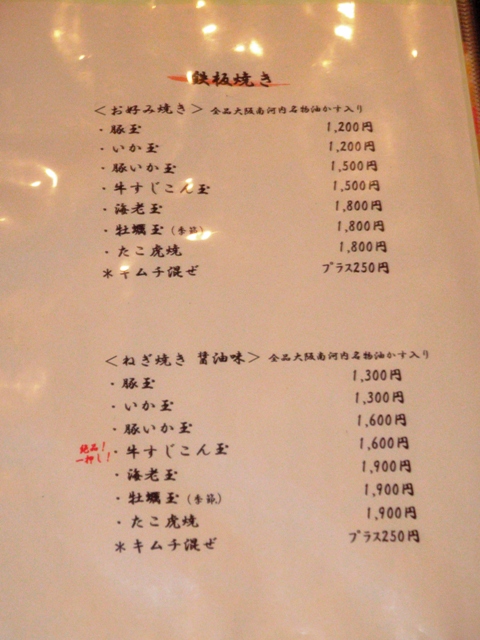 鉄板焼き
＜お好み焼き＞ 全品大阪南河内名物油かす入り
・豚玉 1,200円
・いか玉 1,200円
・豚いか玉 1,500円
・牛すじこん玉 1,500円
・海老玉 1,800円
・牡蠣玉（季節） 1,800円
・たこ虎焼 1,800円
＊キムチ混ぜ プラス250円
＜ねぎ焼き 醤油味＞ 全品大阪南河内名物油かす入り
・豚玉 1,300円
・いか玉 1,300円
・豚いか玉 1,600円
絶品！一押し！ ・牛すじこん玉 1,600円
・海老玉 1,900円
・牡蠣玉（季節） 1,900円
・たこ虎焼 1,900円
＊キムチ混ぜ プラス250円